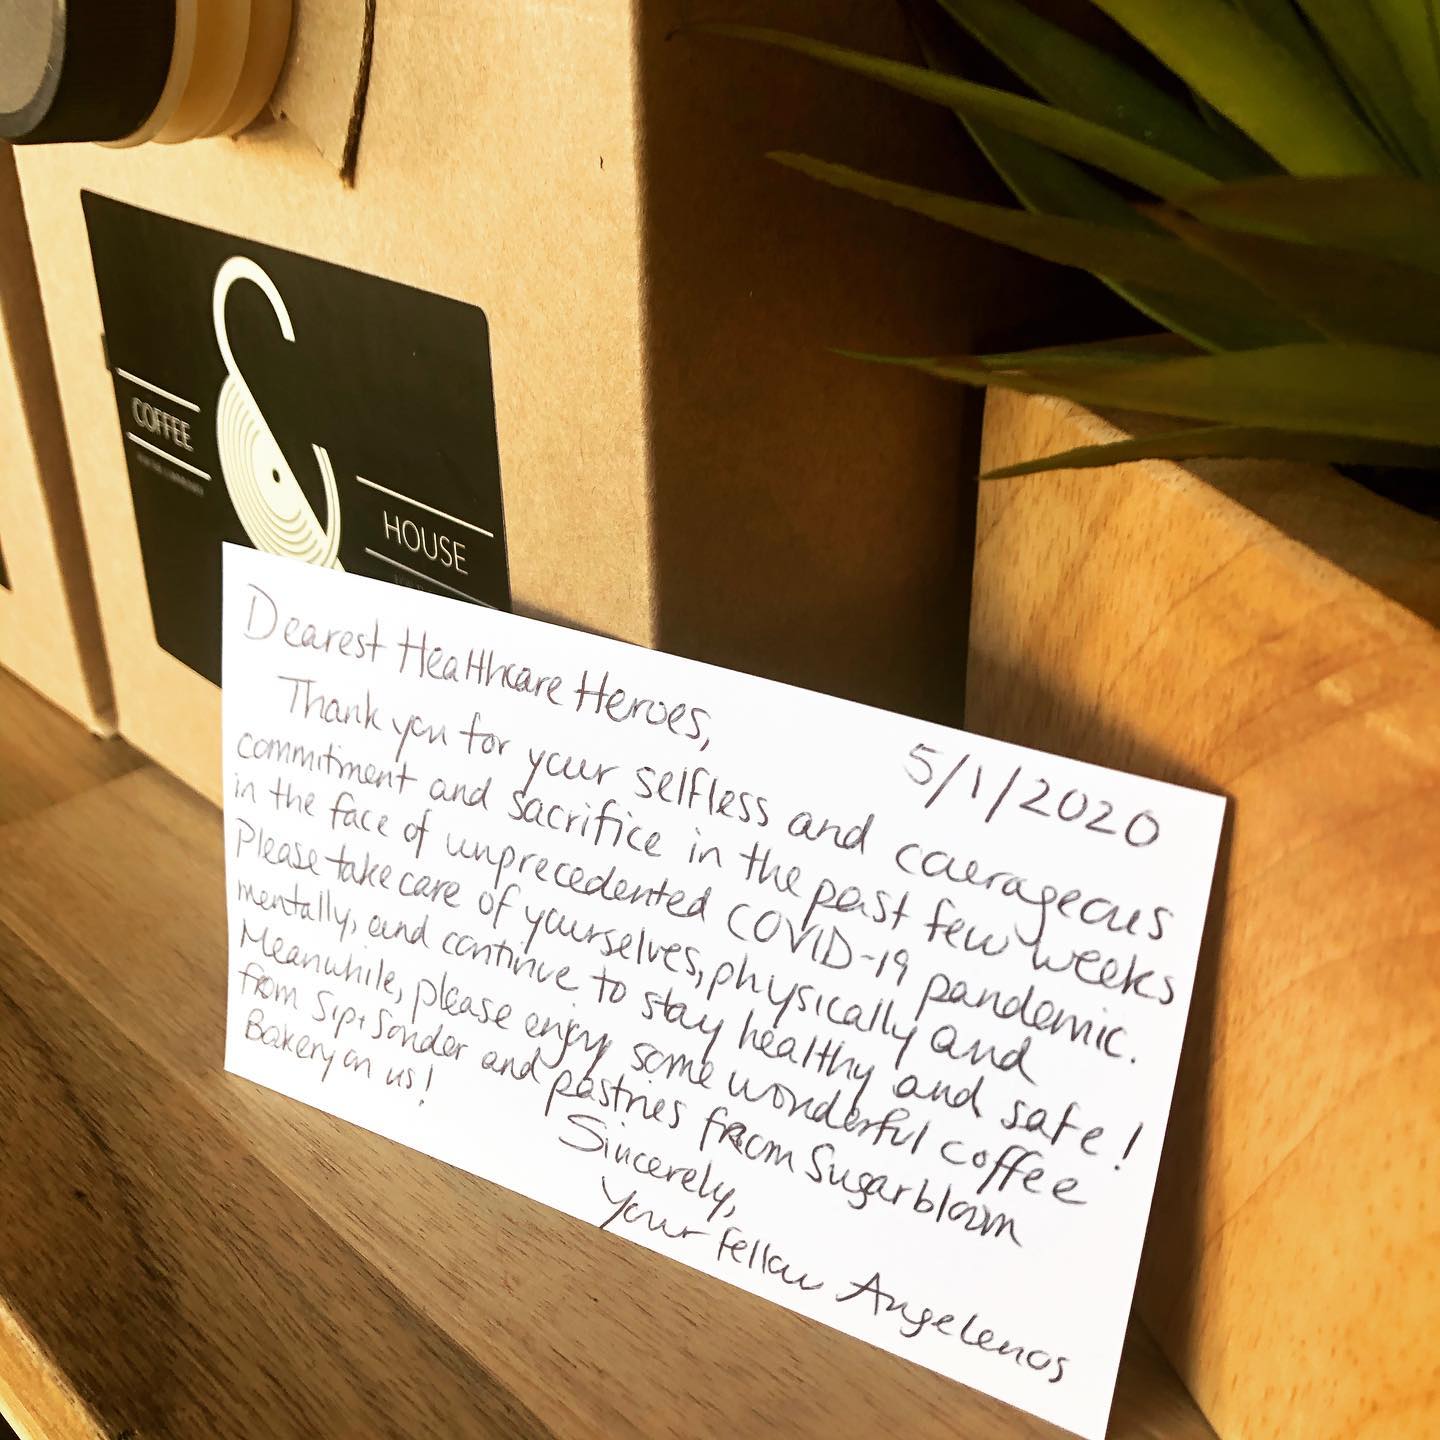 COFFEE
&
HOUSE
Dearest Healthcare Heroes,
5/1/2020
Thank you for your selfless and courageous
commitment and sacrifice in the past few weeks
in the face of unprecedented COVID-19 pandemic.
Please take care of yourselves, physically and
mentally, and continue to stay healthy and safe!
Meanwhile, please enjoy some wonderful coffee
from Sip + Sonder and pastries from Sugarbloom
Bakery on us!
Sincerely,
Your fellow Angelenos